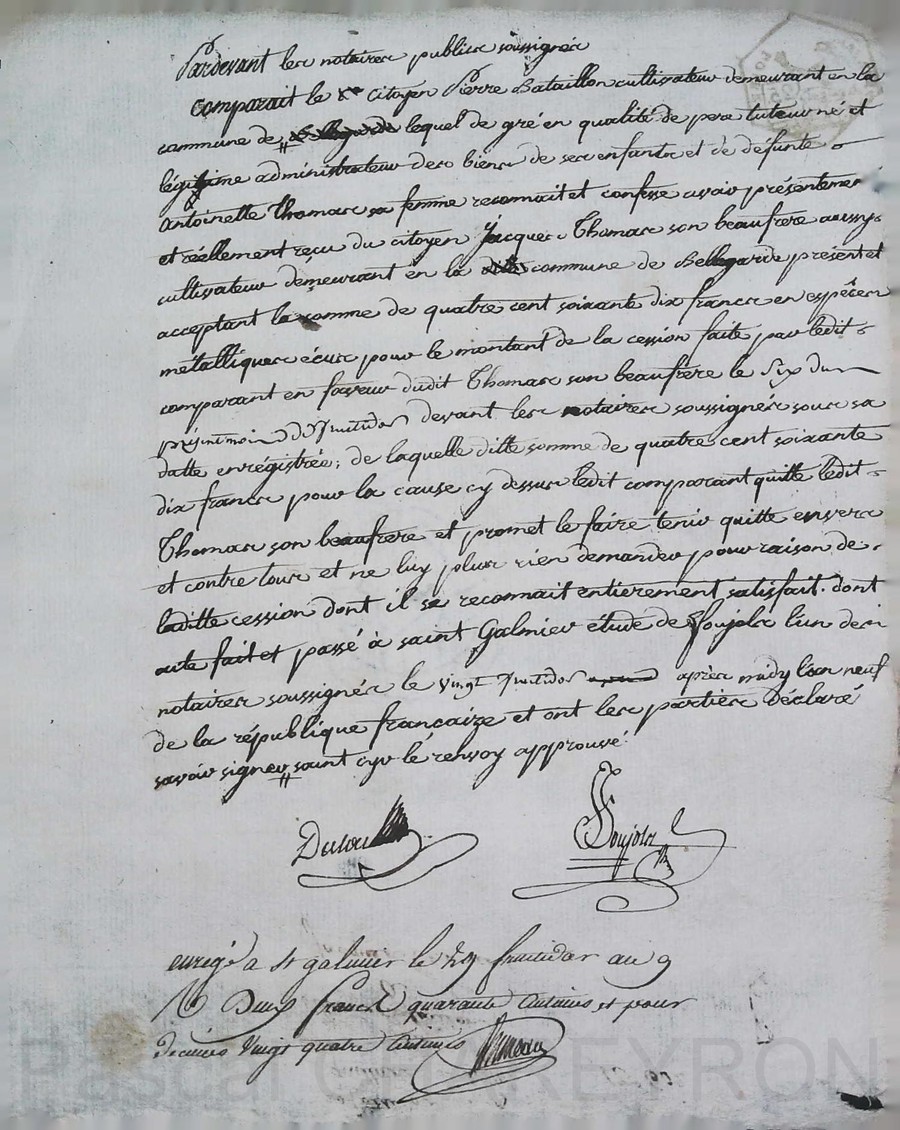 Pardevant les notaires publics soussignés
comparait le citoyen Pierre Bataillon cultivateur demeurant en la
commune de lequel de gré en qualité de pere tuteur né et
légitime administrateur des biens de ses enfants et de défunte
Antoinette Thomas sa femme reconnait et confesse avoir présentement
et réellement reçu du citoyen Jacques Thomas son beaufrere aussy
cultivateur demeurant en la commune de Bellegarde présent et
acceptant la somme de quatre cent soixante dix francs en espèces
métalliques écus pour le montant de la cession faite par ledit
comparant en faveur dudit Thomas son beaufrère le Six du
présent mois fructidor devant les notaires soussignés sous sa
datte enrégistrée, de laquelle ditte somme de quatre cent soixante
dix francs pour la cause cy dessus ledit comparant quitte ledit
Thomas son beaufrere et promet le faire tenir quitte envers
et contre tous et ne luy plus rien demander pour raison de
laditte cession dont il se reconnait entierement satisfait. dont
acte fait et passé à saint Galmier étude de Soujols l'un des
notaires soussignés le vingt fructidor après midy l'an neuf
de la république francaize et ont les parties déclaré
savoir signer saint cyr le renvoy approuvé.
Soujols
enregé a st galmier le 29 fructidor an 9
R Deux francs quarante centimes et pour
decimes vingt quatre centimes
Pascal CHAREYRON